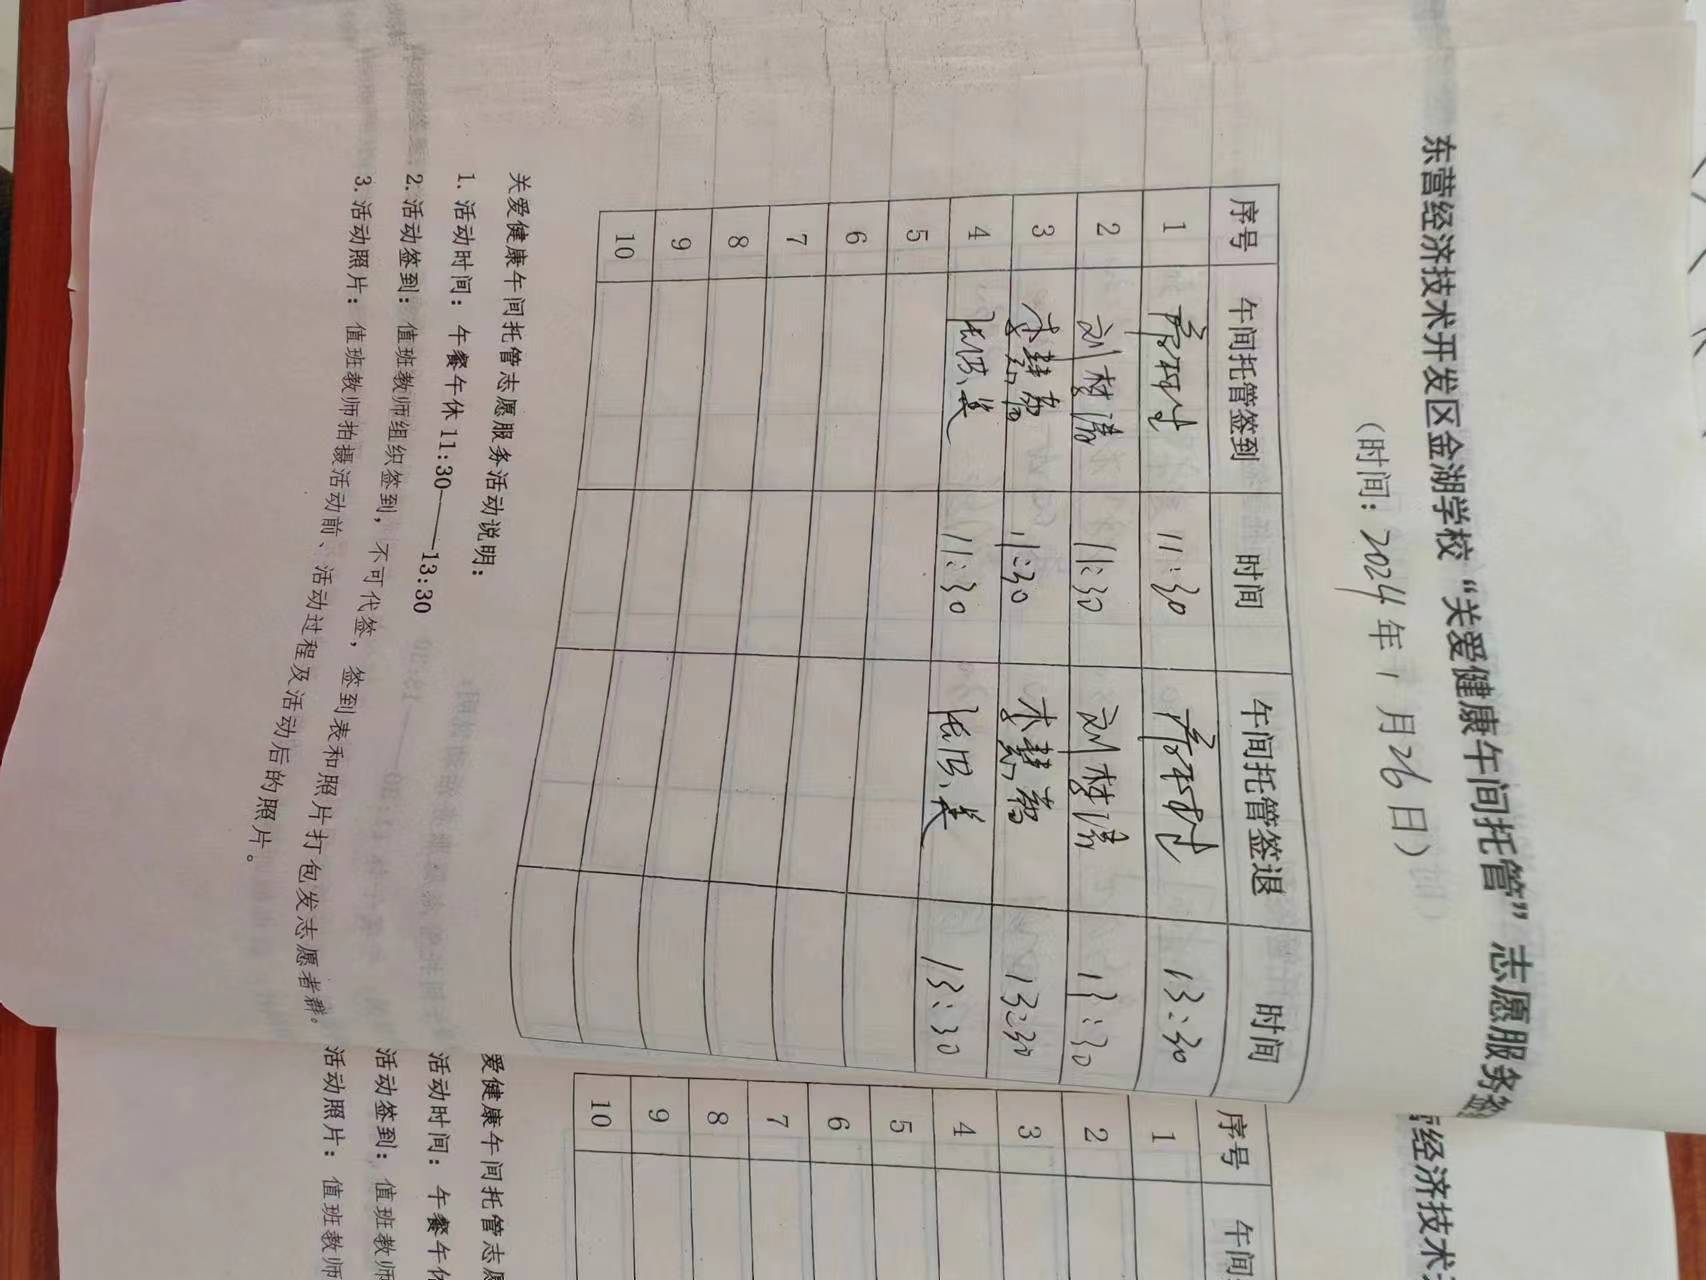 东营经济技术开发区金湖学校“关爱健康午间托管”志愿服务签
(时间:2024年1月26日)
序号 午间托管签到 时间 午间托管签退 时间
1 11:30 13:30
2 刘梦潇 11:30 刘梦潇 13:30
3 李慧勇 11:30 李慧勇 13:30
4 11:30 13:30
5
6
7
8
9
10
关爱健康午间托管志愿服务活动说明:
1.活动时间:午餐午休11:30——13:30
2.活动签到:值班教师组织签到,不可代签,签到表和照片打包发志愿者群。
3.活动照片:值班教师拍摄活动前、活动过程及活动后的照片。
营经济技术
序号 午间
1
2
3
4
5
6
7
8
9
10
爱健康午间托管志愿
活动时间:午餐午休
活动签到:值班教师
活动照片:值班教师